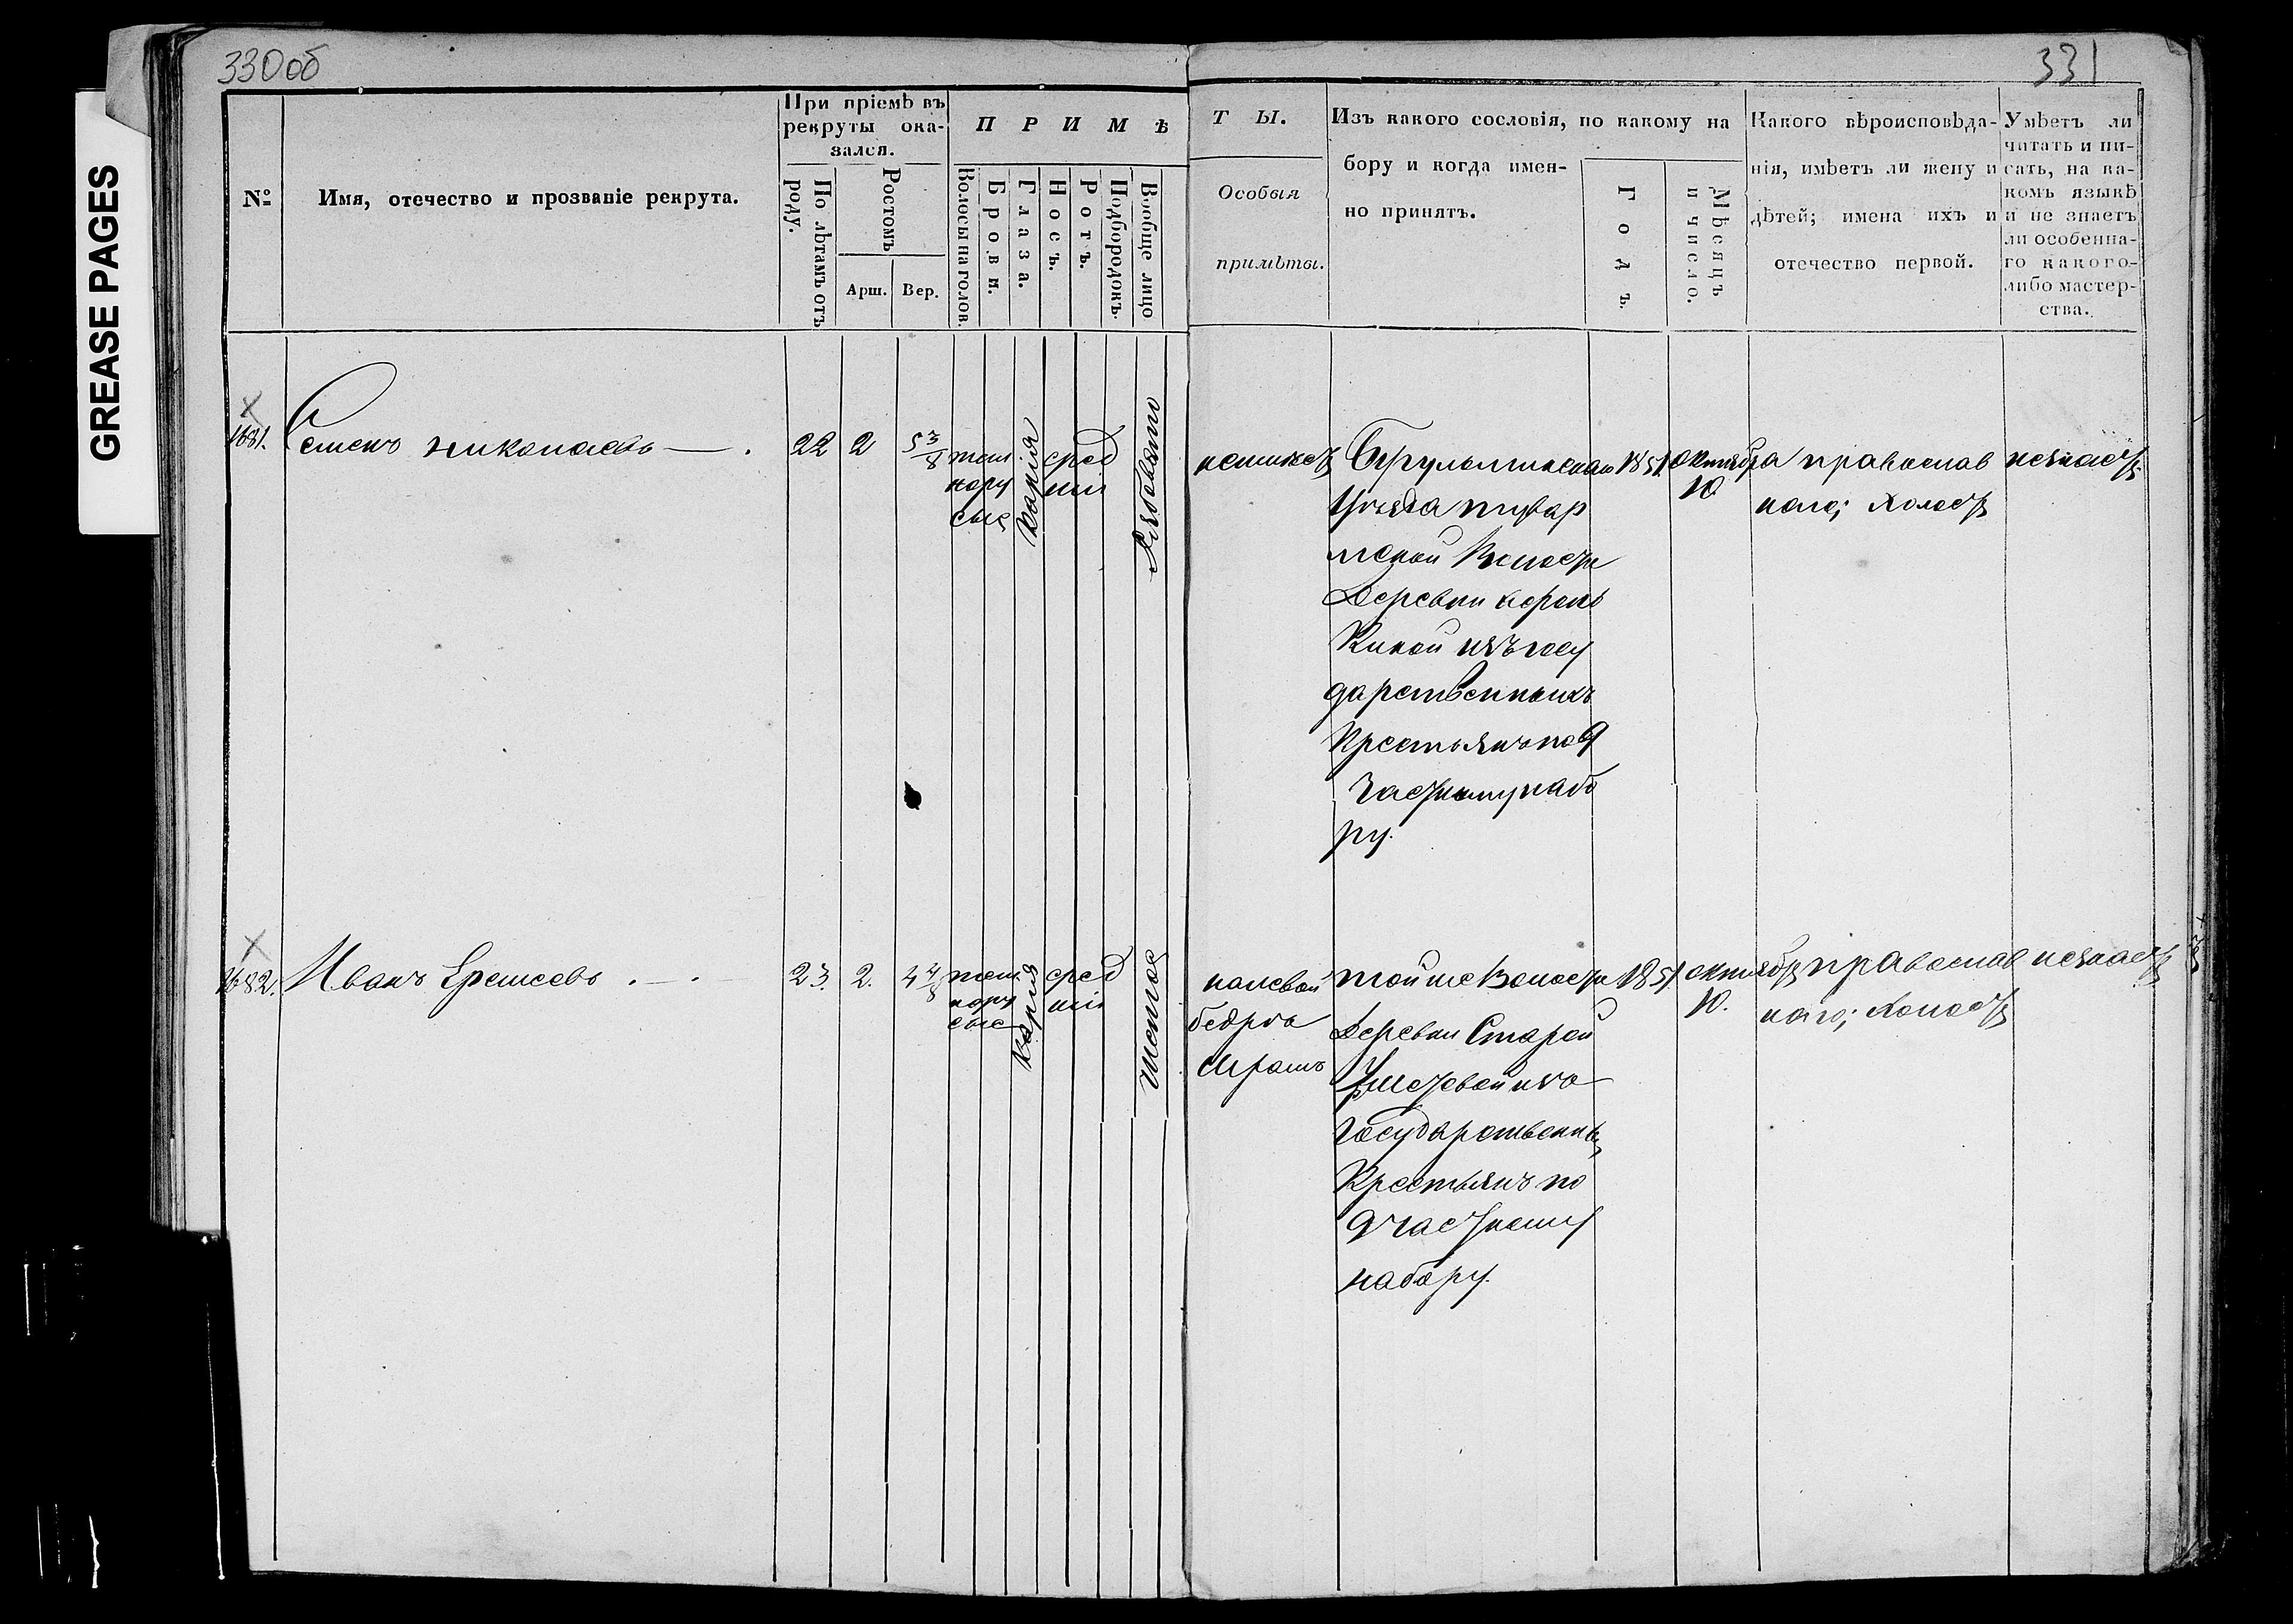 330об
331
GREASE PAGES
№
Имя, отечество и прозваніе рекрута.
При пріемѣ въ
рекруты ока-
зался.
По лѣтамъ отъ
роду.
Ростомъ
Арш.
Вер.
П Р И М Ѣ
Волосы на голов.
Брови.
Глаза.
Носъ.
Ротъ.
Подбородокъ.
Вообще лицо
Т Ы.
Особыя
примѣты.
Изъ какого сословія, по какому на
бору и когда имен-
но принятъ.
Годъ.
Мѣсяцъ
и число.
Какого вѣроисповѣда-
нія, имѣетъ ли жену и
дѣтей; имена ихъ и
отечество первой.
Умѣетъ ли
читать и пи-
сать, на ка-
комъ языкѣ
и не знаетъ
ли особенна-
го какого-
либо мастер-
ства.
1681.
Семенъ Николаевъ
22
2
5 3/8
темн
нору
сые
Карія
сред
нія
Рябовато
неимѣет
1851
Октября
10
православ
наго; Холост
незнает
Уѣзда
Волости
Деревни
Киной изъ госу
дарственныхъ
Крестьянъ по 9
Частному наб
ру.
1682.
Иванъ Еремеевъ
23.
2.
4 4/8
темн
нору
сые
Карія
сред
нія
Чистое
на левой
бедрѣ
Шрамъ
той же Волости
Деревни Старой
Государственны
Крестьянъ по
9 Частному
набору.
1851
октября
10.
православ
наго; Холост
незнает